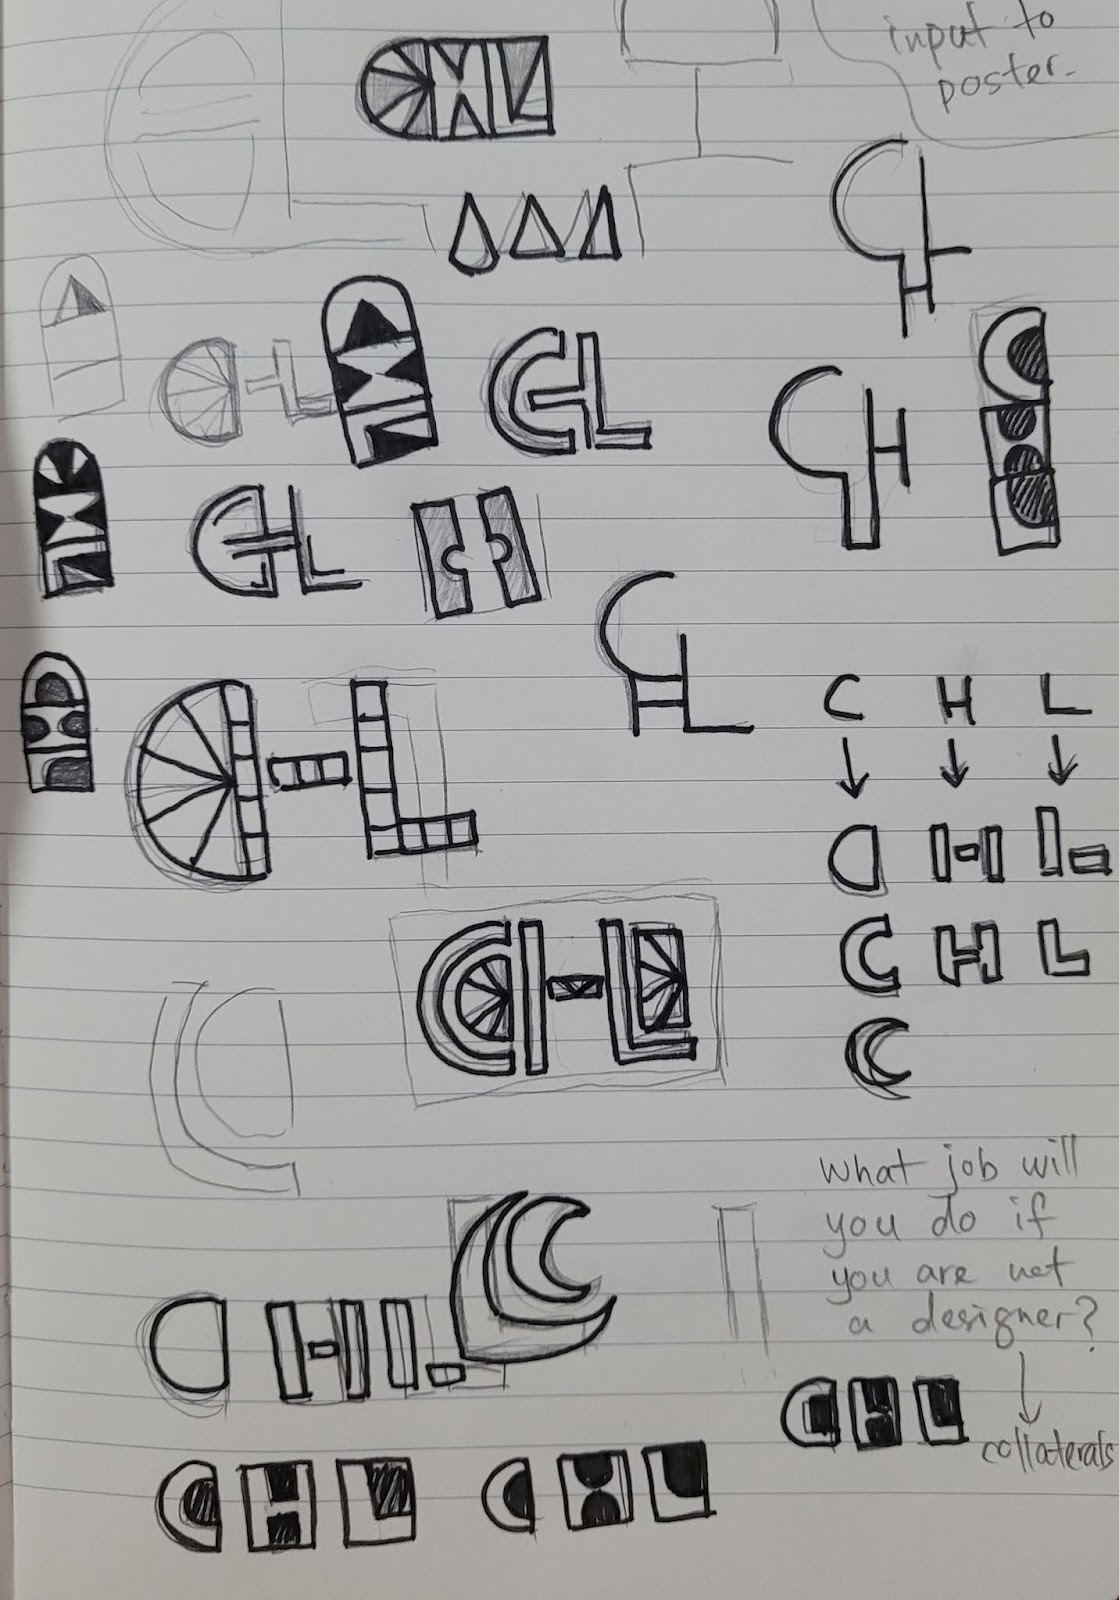 input to
poster.
CHL
CHL
CHL
CHL
CHL
CH
CHL
CHL
CHL
C H L
C H L
C H L
C
CHL
What job will
you do if
you are not
a designer?
CHL
C
CHL
collaterals
CHL CHL